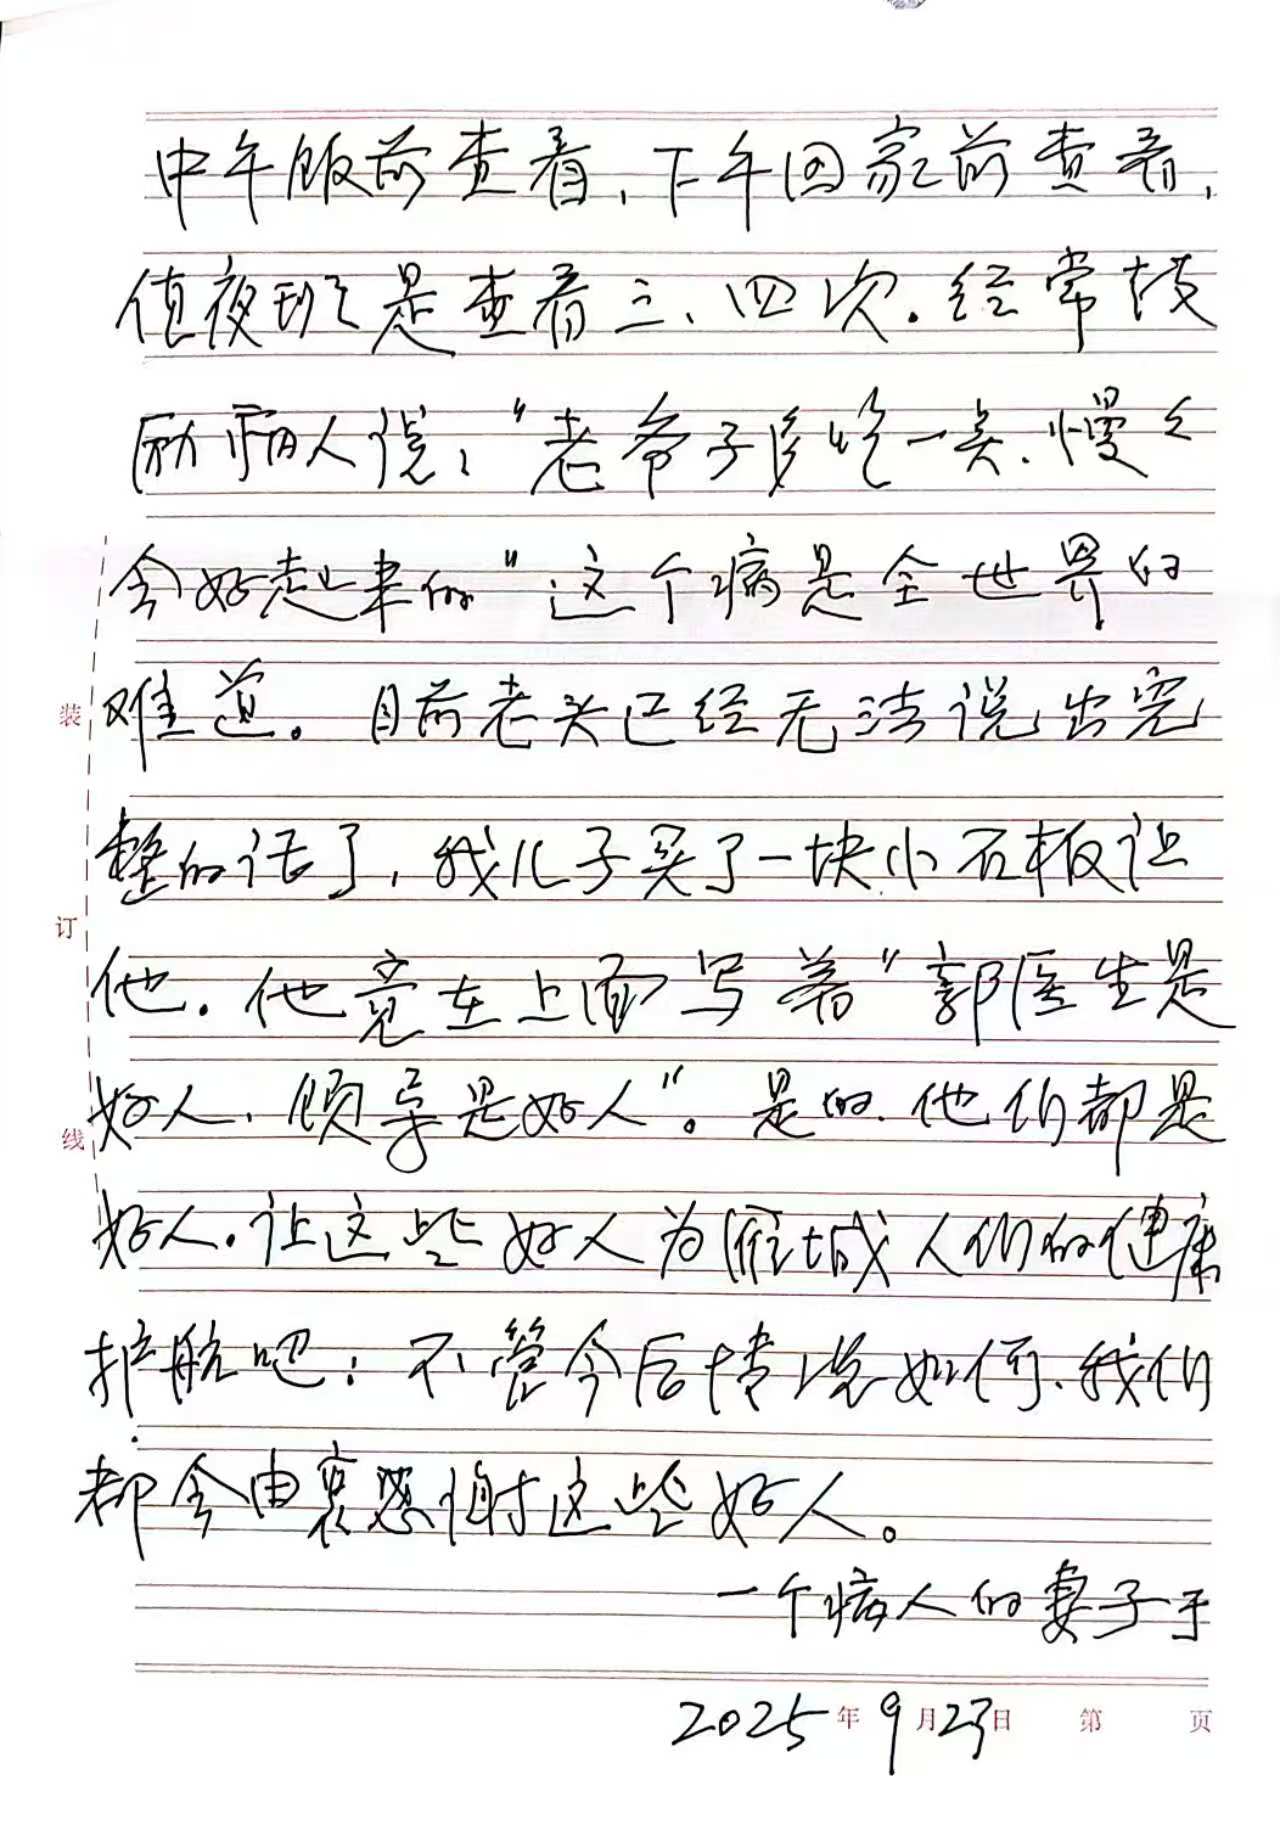 中午饭前查看、下午回家前查看，
值夜班是查看三、四次。经常鼓
励病人说："老爷子多吃一点、慢々
会好起来的"这个病是全世界的
难道。目前老头已经无法说出完
整的话了，我儿子买了一块小石板让
他。他竟在上面写着"郭医生是
好人、领导是好人"。是的、他们都是
好人。让这些好人为雁城人们的健康
护航吧！不管今后情况如何、我们
都会由衷感谢这些好人。
一个病人的妻子于
2025年9月23日 第 页
装
订
线